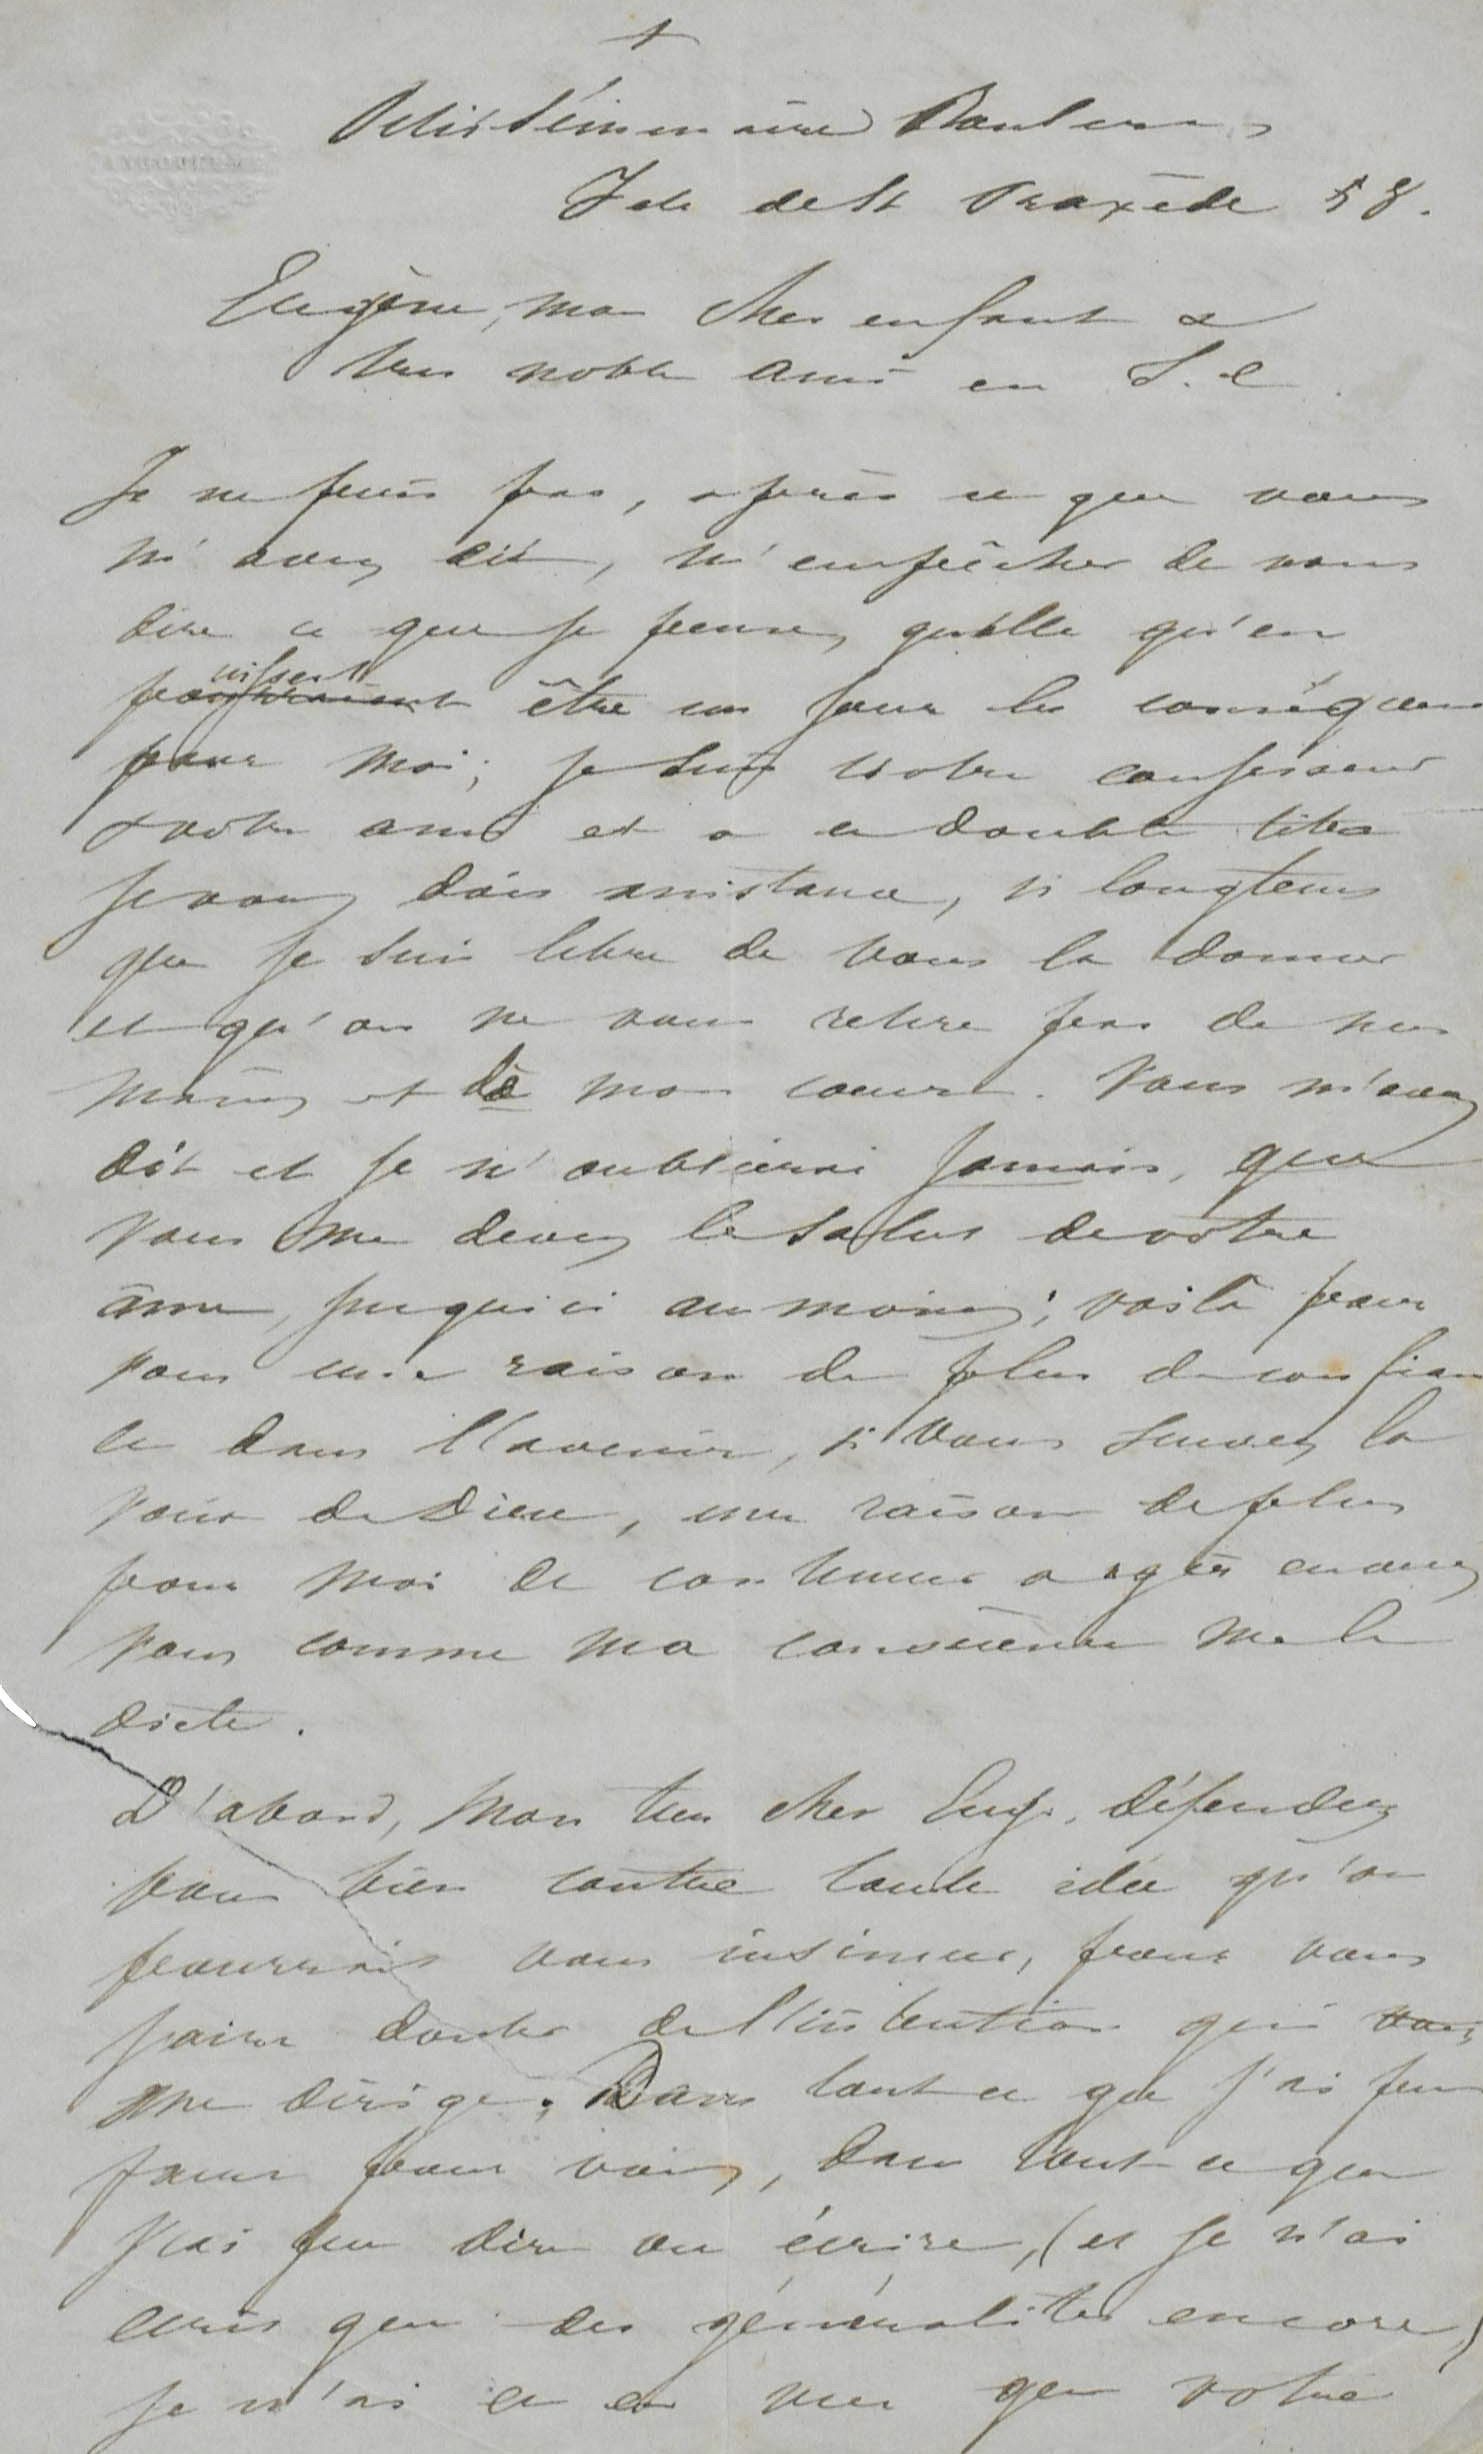 +
Petit Séminaire Roulers
Fête de St Praxède 58.
Eugène, mon cher enfant &
très noble ami en J. C
Je ne puis pas, après ce que vous
m'avez dit, m'empêcher de vous
dire ce que je pense, quelle qu'en
puissent être un jour les conséquen
pour moi; je suis votre confesseur
& votre ami et a ce double titre
je vous dois assistance, si longtems
que je suis libre de vous la donner
et qu'on ne vous retire pas de mes
mains et de mon coeur. Vous m'avez
dit et je n'oublierai jamais, que
vous me devez le salut de votre
âme, jusqu'ici au moins; voilà pour
vous une raison de plus de confian
ce dans l'avenir, si vous suivez la
voix de Dieu, une raison de plus
pour moi de continuer a agir envers
vous comme ma conscience me le
dicte.
D'abord, mon très cher Eug. défendez
vous bien contre toute idée qu'on
pourrait vous insinuer, pour vous
faire douter de l'intention qui vous
me dirige. Dans tout ce que j'ai pu
faire pour vous, dans tout ce que
j'ai pu dire ou écrire, (et je n'ai
écris que des généralités encore)
je n'ai eu en vue que votre